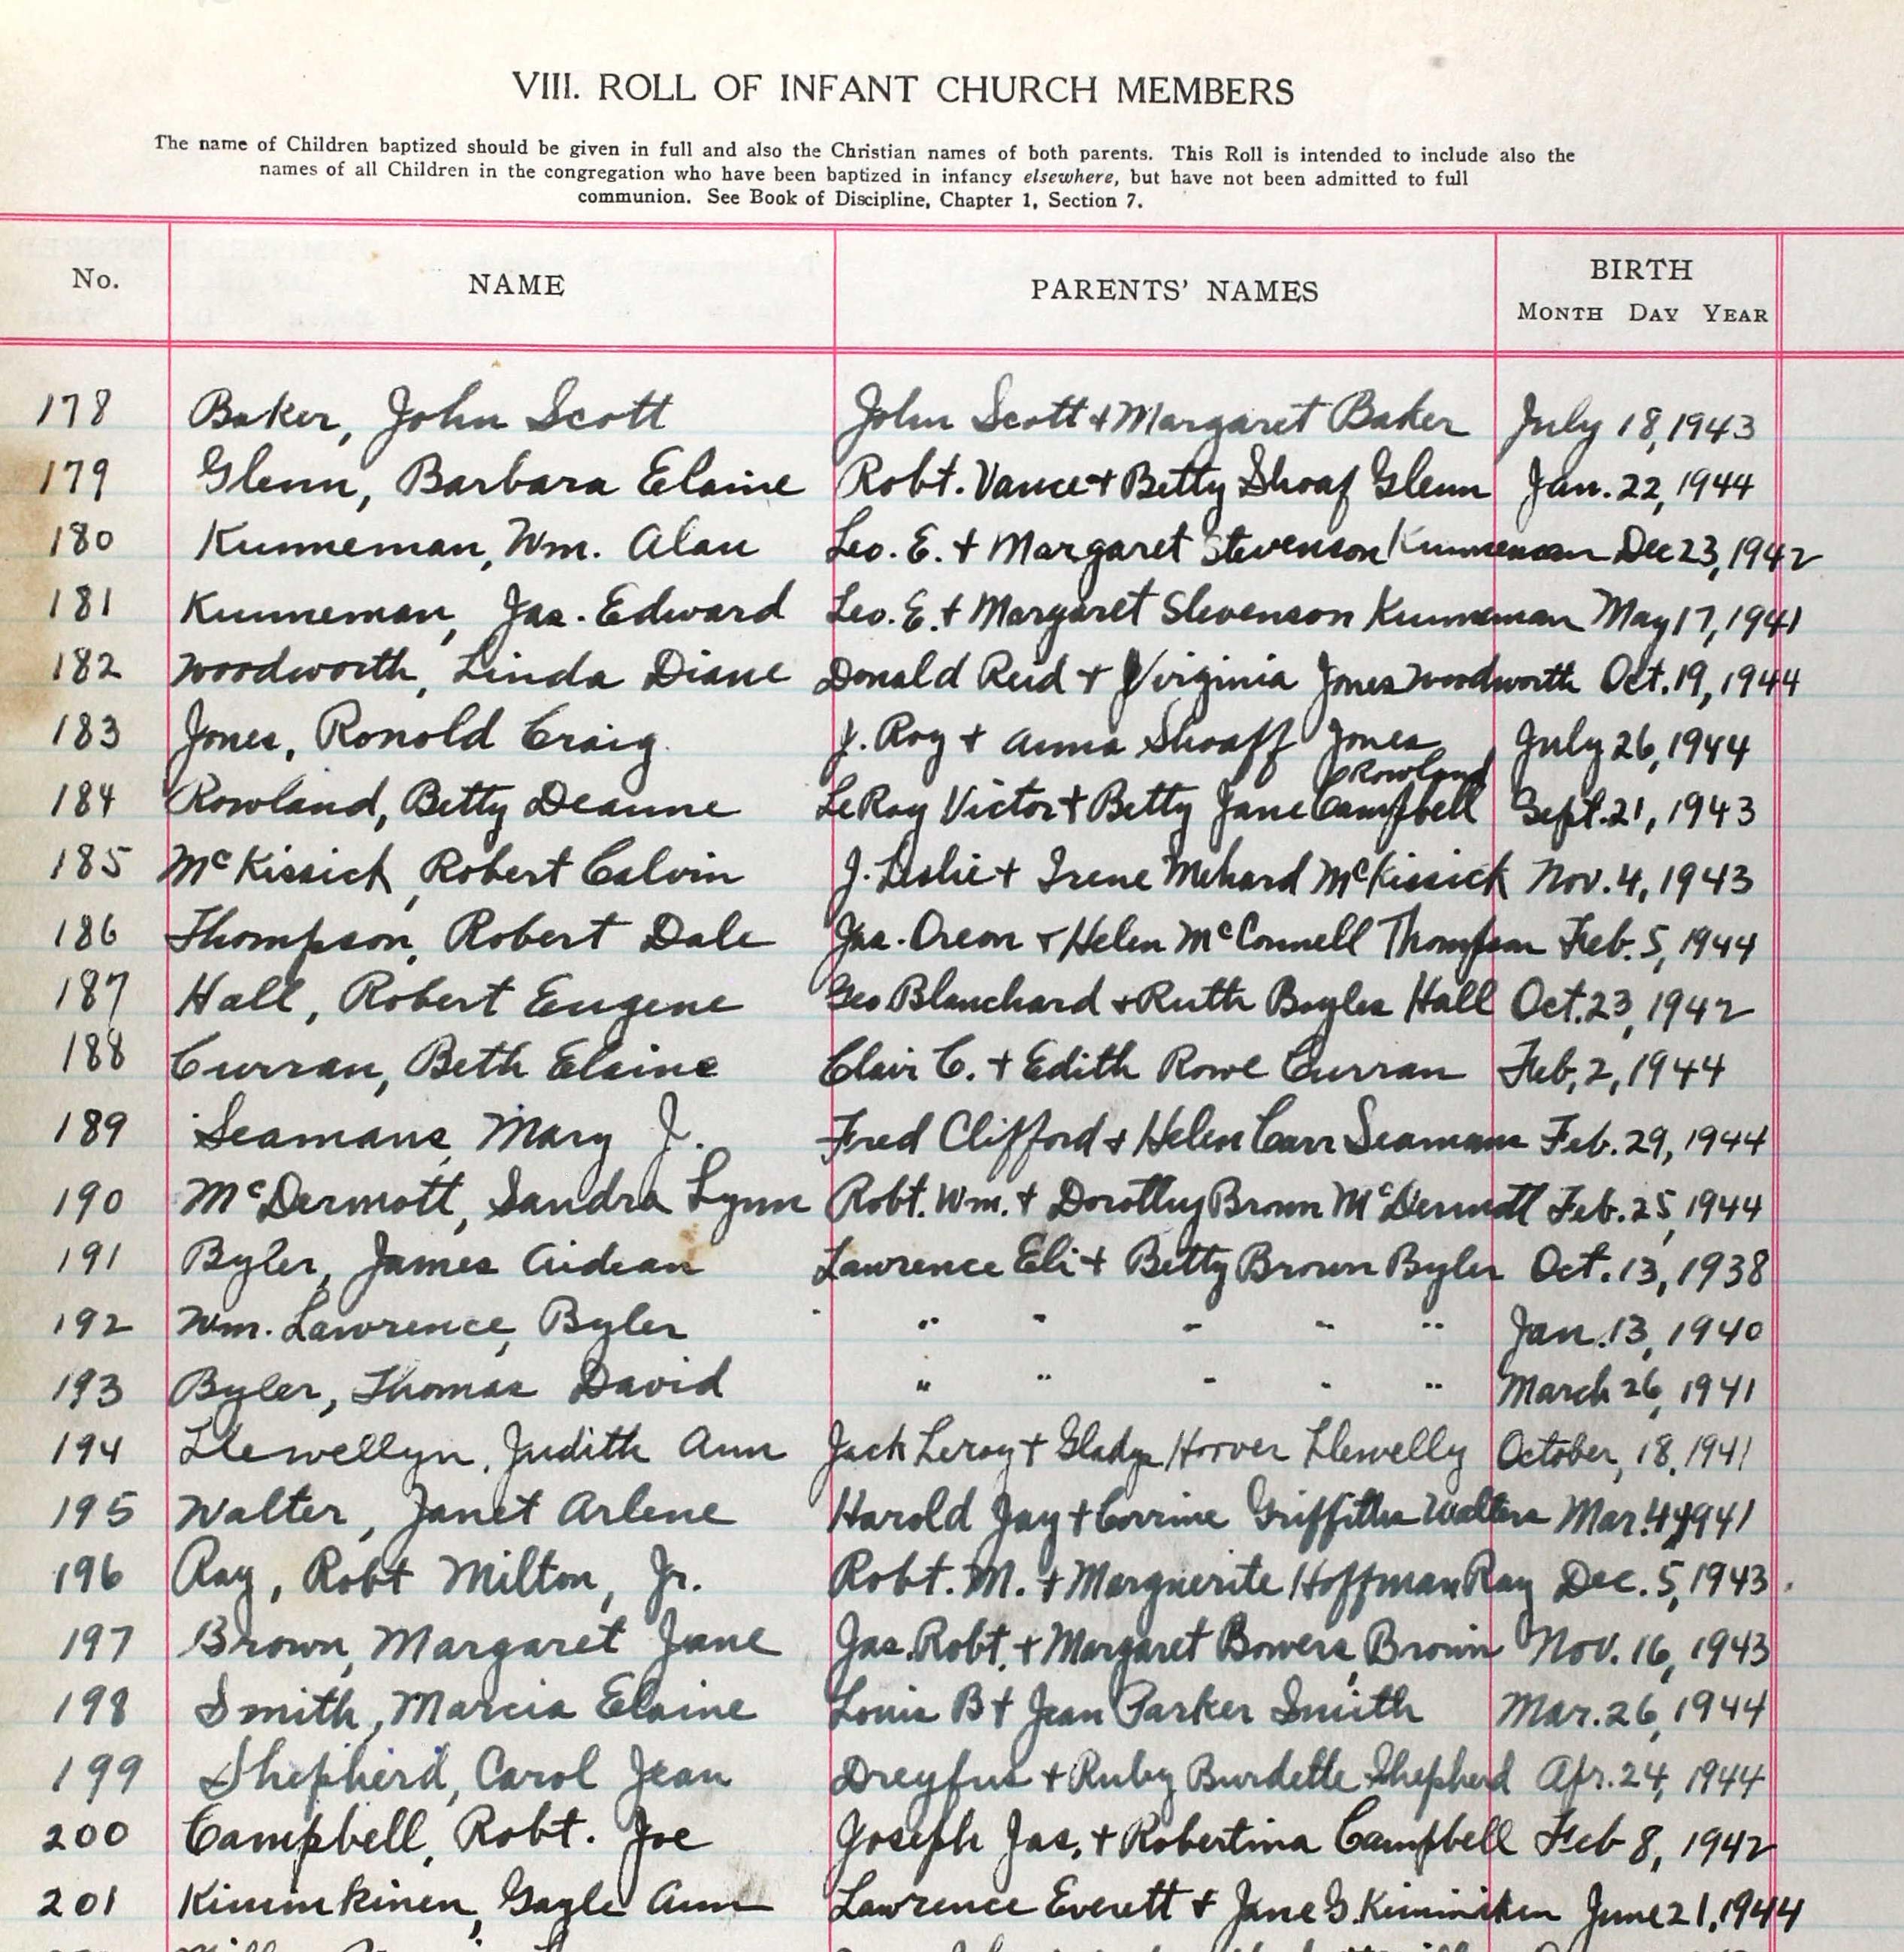 VIII. ROLL OF INFANT CHURCH MEMBERS
The name of Children baptized should be given in full and also the Christian names of both parents. This Roll is intended to include also the
names of all Children in the congregation who have been baptized in infancy elsewhere, but have not been admitted to full
communion. See Book of Discipline, Chapter 1, Section 7.
No. NAME PARENTS' NAMES BIRTH
MONTH DAY YEAR
178 Baker, John Scott John Scott + Margaret Baker July 18, 1943
179 Glenn, Barbara Elaine Robt. Vance + Betty Shoaf Glenn Jan. 22, 1944
180 Kunneman, Wm. Alan Leo. E. + Margaret Stevenson Kunneman Dec 23, 1942
181 Kunneman, Jas. Edward Leo. E. + Margaret Stevenson Kunneman May 17, 1941
182 Woodworth, Linda Diane Donald Reid + Virginia Jones Woodworth Oct. 19, 1944
183 Jones, Ronold Craig J. Roy + Anna Shoaff Jones July 26, 1944
184 Rowland, Betty Deanne LeRoy Victor + Betty Jane Campbell Rowland Sept. 21, 1943
185 McKissick, Robert Calvin J. Leslie + Irene Mehard McKissick Nov. 4, 1943
186 Thompson, Robert Dale Jas. Orean + Helen McConnell Thompson Feb. 5, 1944
187 Hall, Robert Eugene Geo Blanchard + Ruth Boyles Hall Oct. 23, 1942
188 Curran, Beth Elaine Clair C. + Edith Rowe Curran Feb, 2, 1944
189 Seamans, Mary J. Fred Clifford + Helen Carr Seamans Feb. 29, 1944
190 McDermott, Sandra Lynn Robt. Wm. + Dorothy Brown McDermott Feb. 25, 1944
191 Byler, James Aidean Lawrence Eli + Betty Brown Byler Oct. 13, 1938
192 Wm. Lawrence, Byler " " " " " Jan. 13, 1940
193 Byler, Thomas David " " " " " March 26, 1941
194 Llewellyn, Judith Ann Jack Leroy + Gladys Hoover Llewelly October, 18, 1941
195 Walter, Janet Arlene Harold Jay + Corrine Griffiths Walters Mar. 4, 1941
196 Ray, Robt Milton, Jr. Robt. M. + Marguerite Hoffman Ray Dec. 5, 1943
197 Brown, Margaret Jane Jas. Robt. + Margaret Bowers, Brown Nov. 16, 1943
198 Smith, Marcia Elaine Louis B + Jean Parker Smith Mar. 26, 1944
199 Shepherd, Carol Jean Dreyfus + Ruby Burdette Shepherd Apr. 24, 1944
200 Campbell, Robt. Joe Joseph Jas, + Robertina Campbell Feb 8, 1942
201 Kimmkinen, Gayle Ann Lawrence Everett + Jane G. June 21, 1944